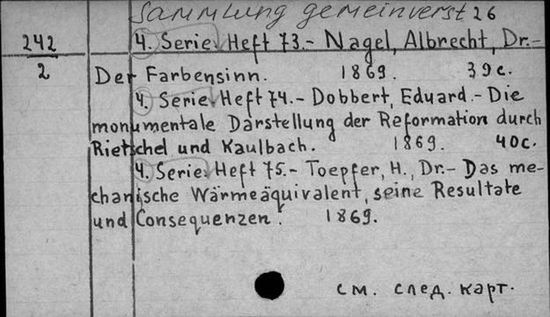 Sammlung gemeinverst 26
242
2
4. Serie. Heft 73.- Nagel, Albrecht, Dr.-
Der Farbensinn. 1869. 39 с.
4. Serie. Heft 74.- Dobbert, Eduard.- Die
monumentale Darstellung der Reformation durch
Rietschel und Kaulbach. 1869. 40 с.
4. Serie. Heft 75.- Toepfer, H., Dr.- Das me-
chanische Wärmeäquivalent, seine Resultate
und Consequenzen. 1869.
см. след. карт.